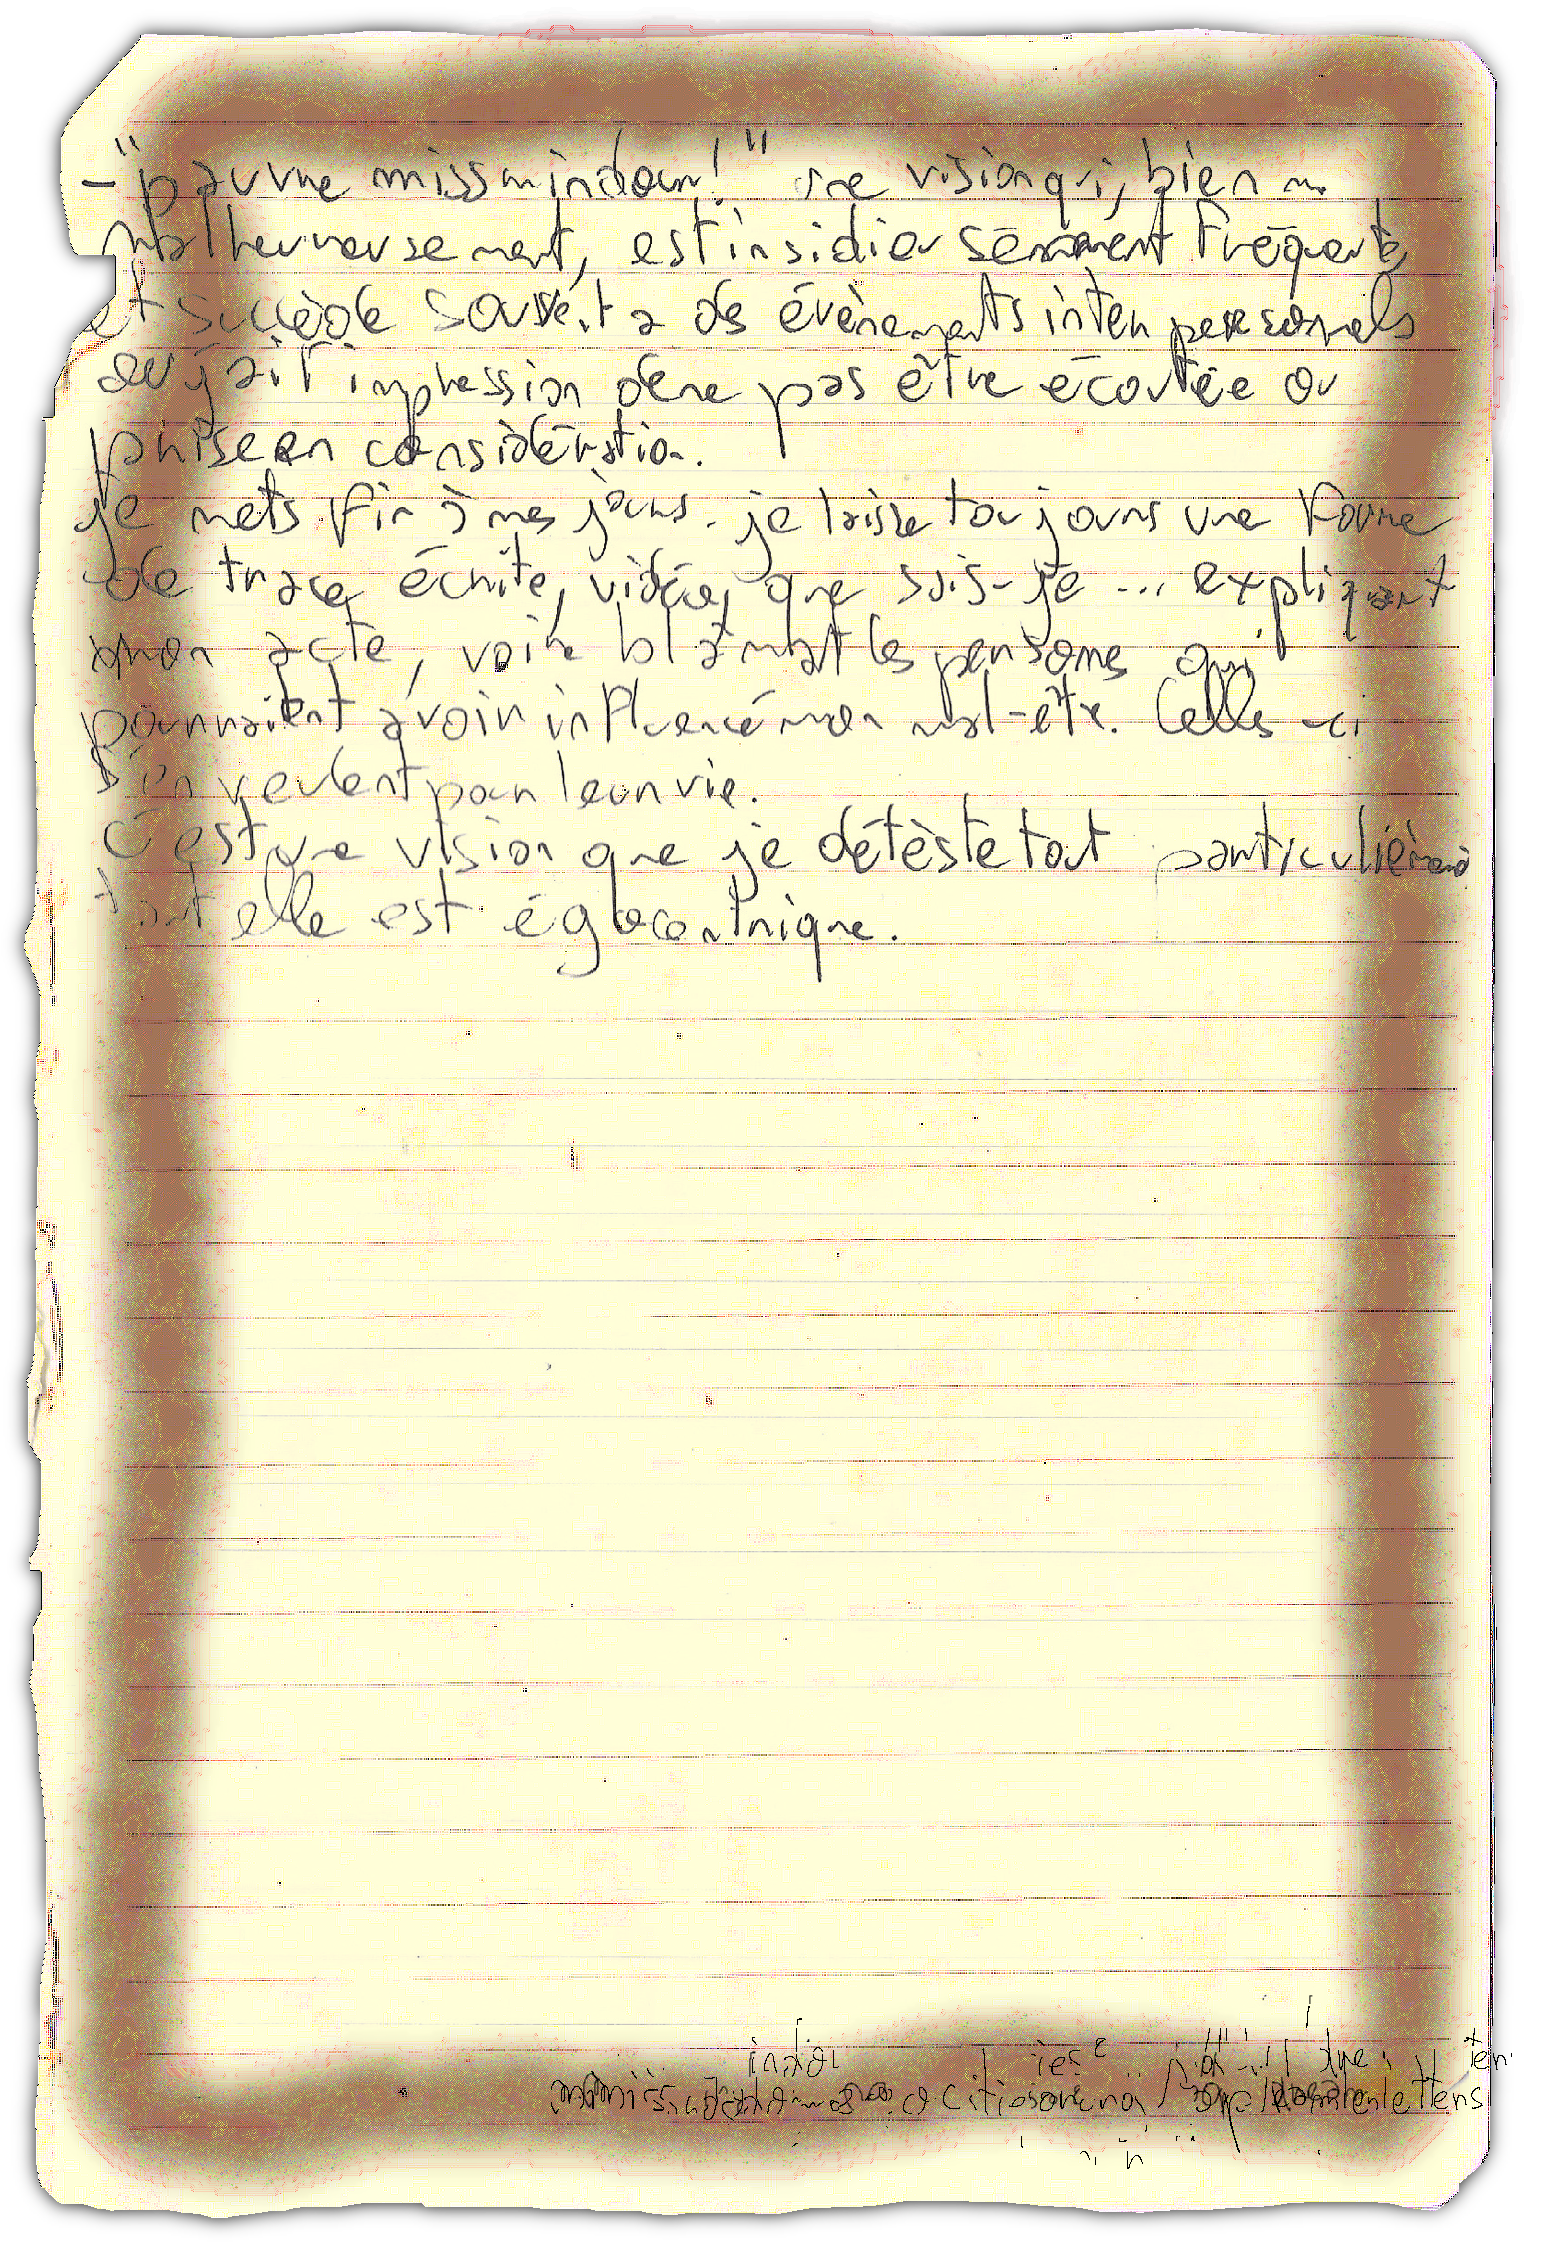 - "pauvre missmindour!" une vision qui, bien
malheureusement, est insidieusement fréquente,
et succède souvent a des évènements inter personnels
où j'ai l'impression de ne pas être écoutée ou
prise en considération.
je mets fin à mes jours. je laisse toujours une forme
de trace écrite, vidéo, que sais-je ... expliquant
mon acte, voire blâmant les personnes qui
pourraient avoir influencé mon mal-être. Celles-ci
s'en veulent pour leur vie.
C'est une vision que je détèste tout particulièrement
tant elle est égocentrique.